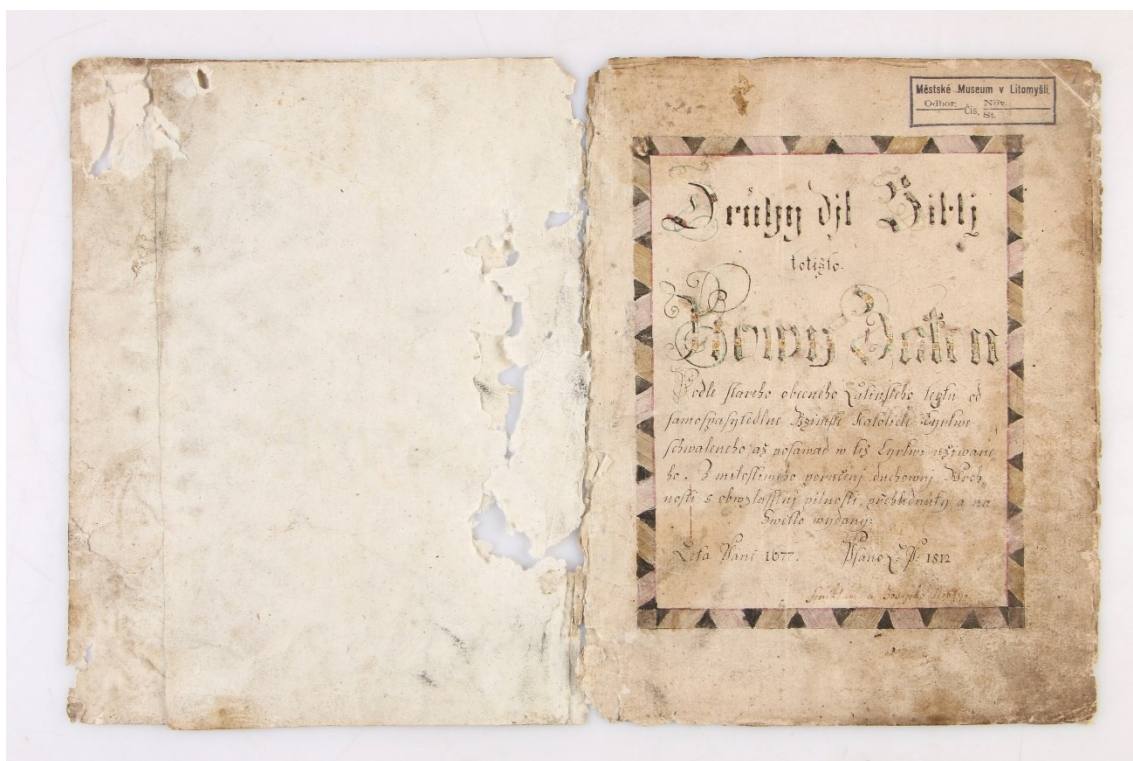 Městské Museum v Litomyšli.
Odbor: Nov.
Čís. St.
Druhy djl Biblj
totižto.
Nowy Zakon
Podle stareho obecného Latinského textu od
samospasytedlne Ržimske Katolicke Cyrkwe
schwaleneho až posawad w též Cyrkwi užiwane
ho. Z milostiweho poručenj duchownj Wrch
nosti s obwzlásstnj pilnosti, přehlednuty a na
Swětlo wydany:
Leta Páně 1677. Psano L. P. 1812